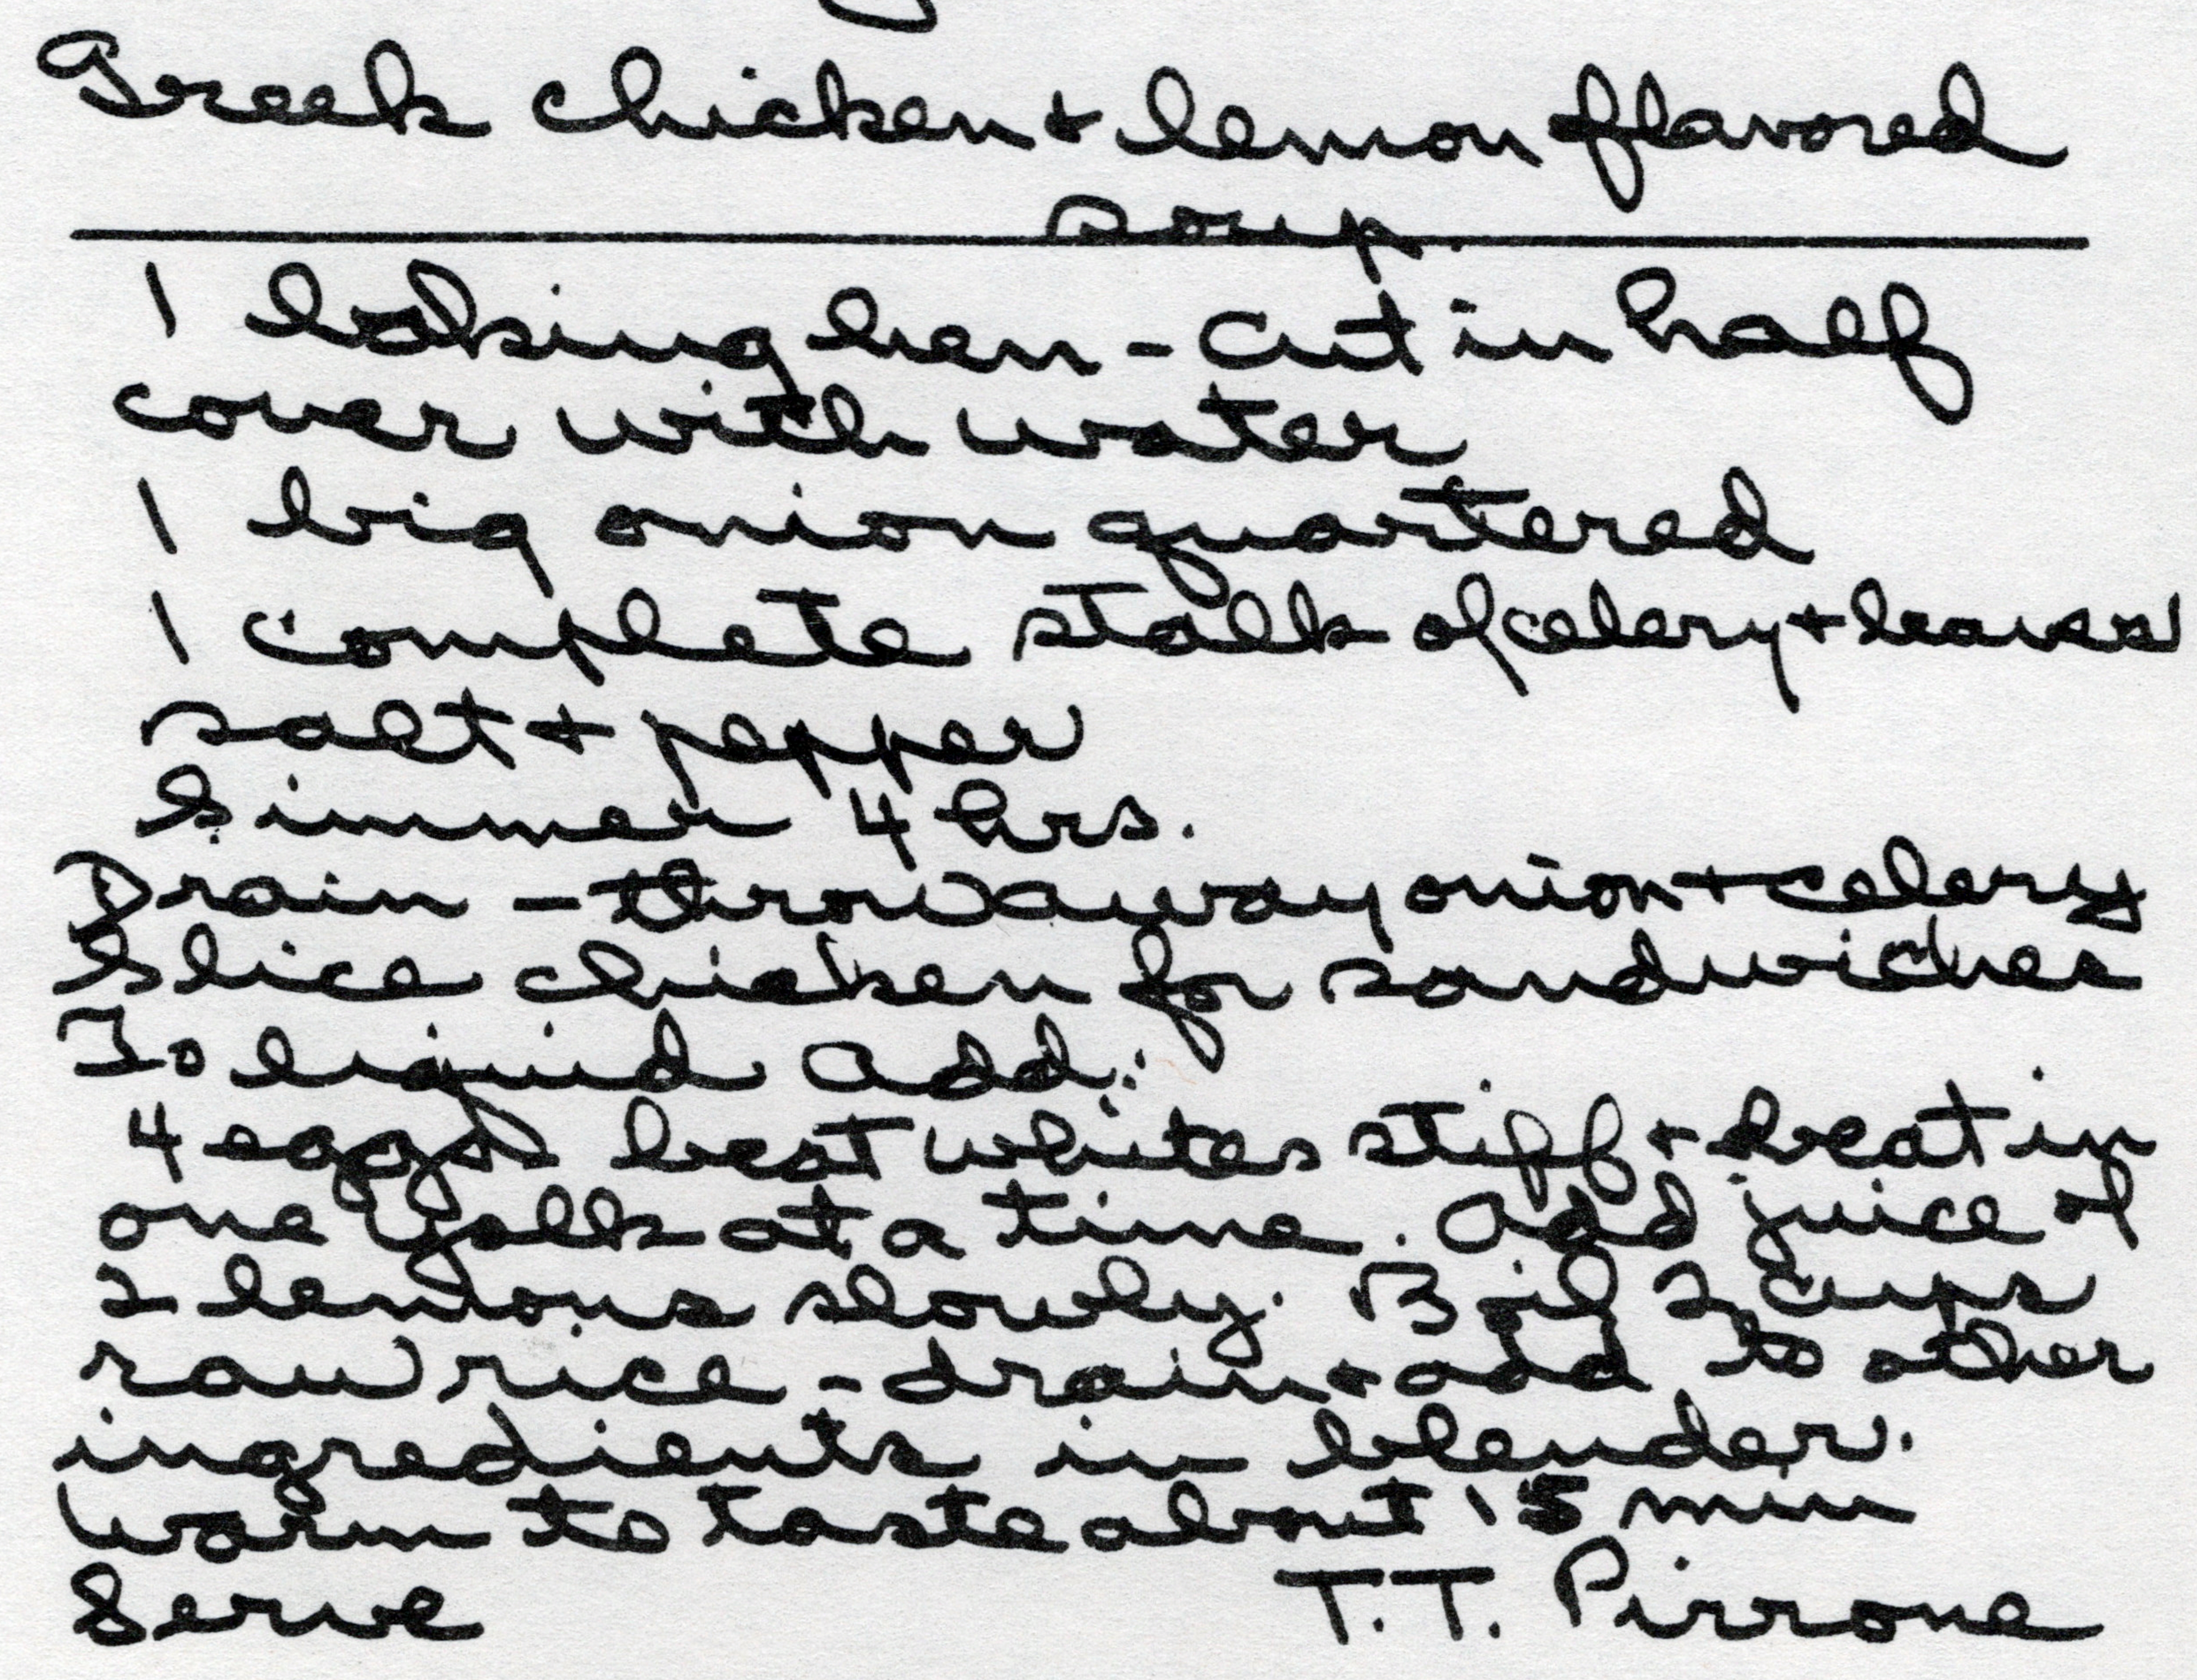 Greek chicken + lemon flavored
soup.
1 baking hen - cut in half
cover with water
1 big onion quartered
1 complete stalk of celery + leaves
salt + pepper
Simmer 4 hrs.
Drain - throw away onion + celery
Slice chicken for sandwiches
To liquid add:
4 eggs beat whites stiff + beat in
one yolk at a time. Add juice of
2 lemons slowly. Boil 2 cups
raw rice - drain + add to other
ingredients in blender.
Warm to taste about 15 min
Serve T.T. Pirrone